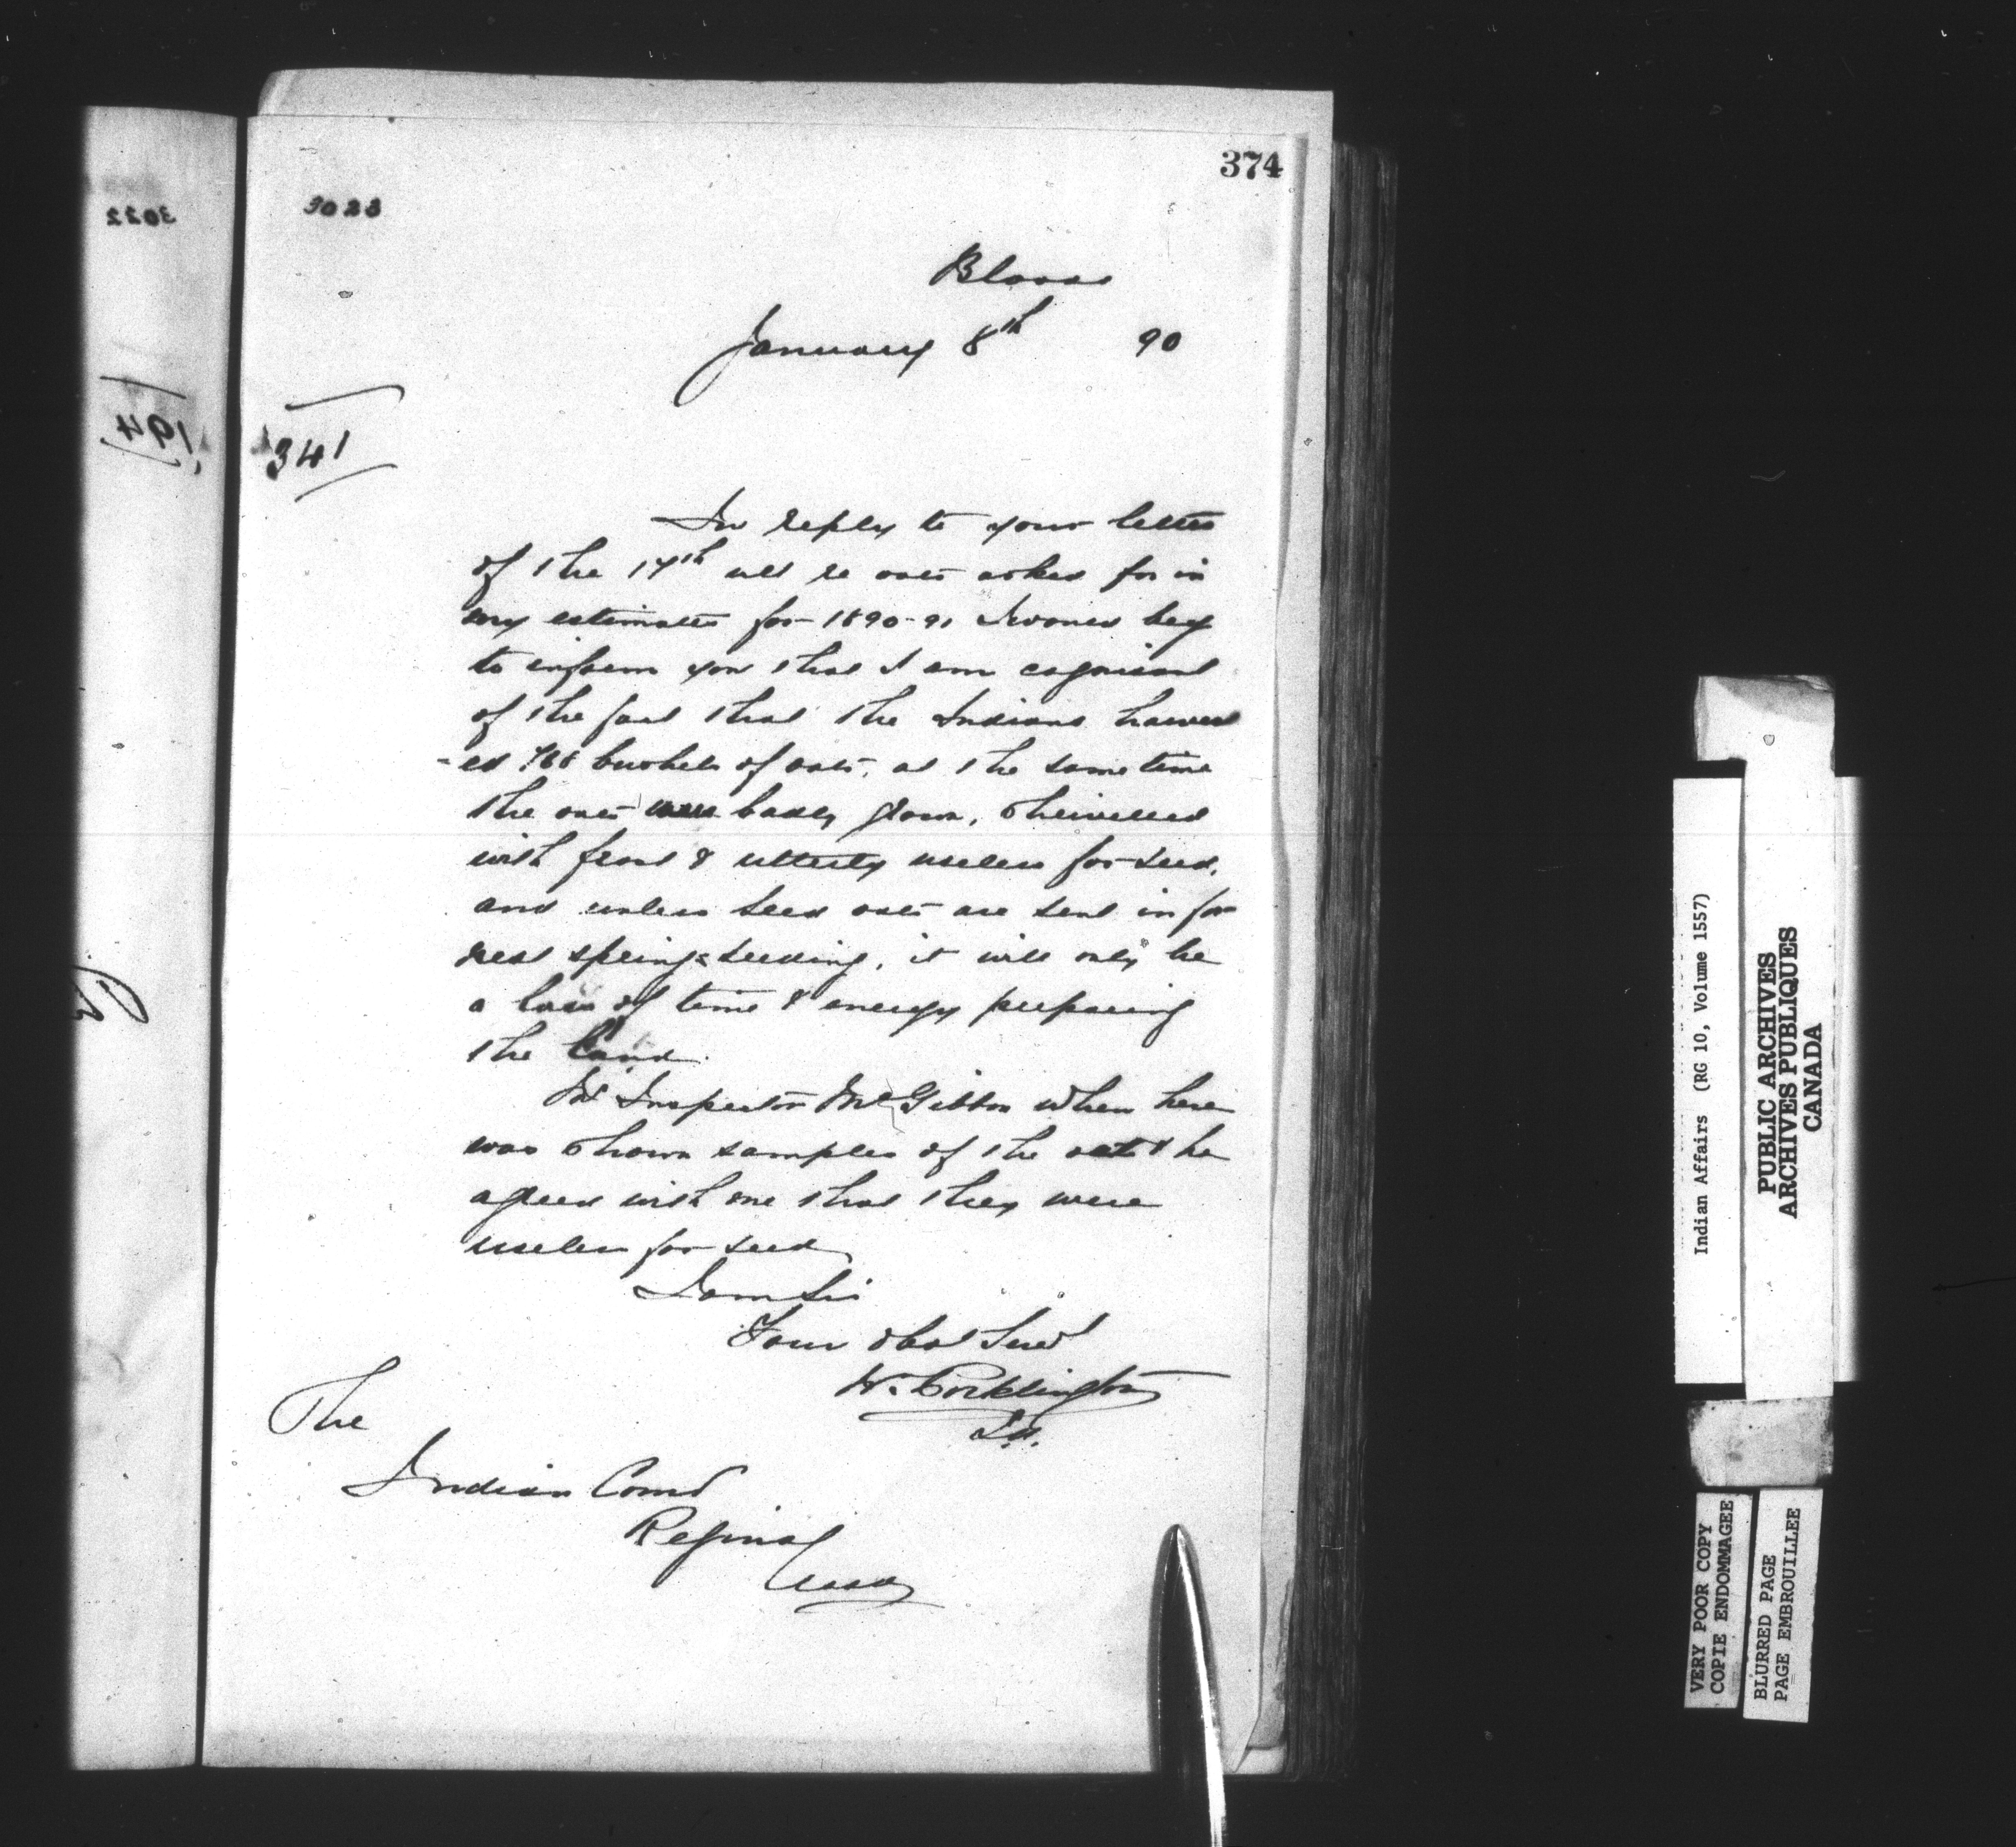 374
3022
3023
Blood
January 8th 90
194
341
In reply to your letter
of the 17th ult re oats asked for in
my estimates for 1890-91 I would beg
to inform you that I am cognisant
of the fact that the Indians harvest
-ed bushels of oats, at the same time
the oats were badly grown, shrivelled
with frost & utterly useless for seed,
and unless seed oats are sent in for
next springs seeding, it will only be
a loss of time & energy preparing
the land.
Mr Inspector McGibbon when here
was shown samples of the oats & he
agreed with me that they were
useless for seed
I am Sir
Your obdt Servt
W. Pocklington
The
Indian Comr
Regina
Assa
Indian Affairs (RG 10, Volume 1557)
PUBLIC ARCHIVES
ARCHIVES PUBLIQUES
CANADA
VERY POOR COPY
COPIE ENDOMMAGEE
BLURRED PAGE
PAGE EMBROUILLEE